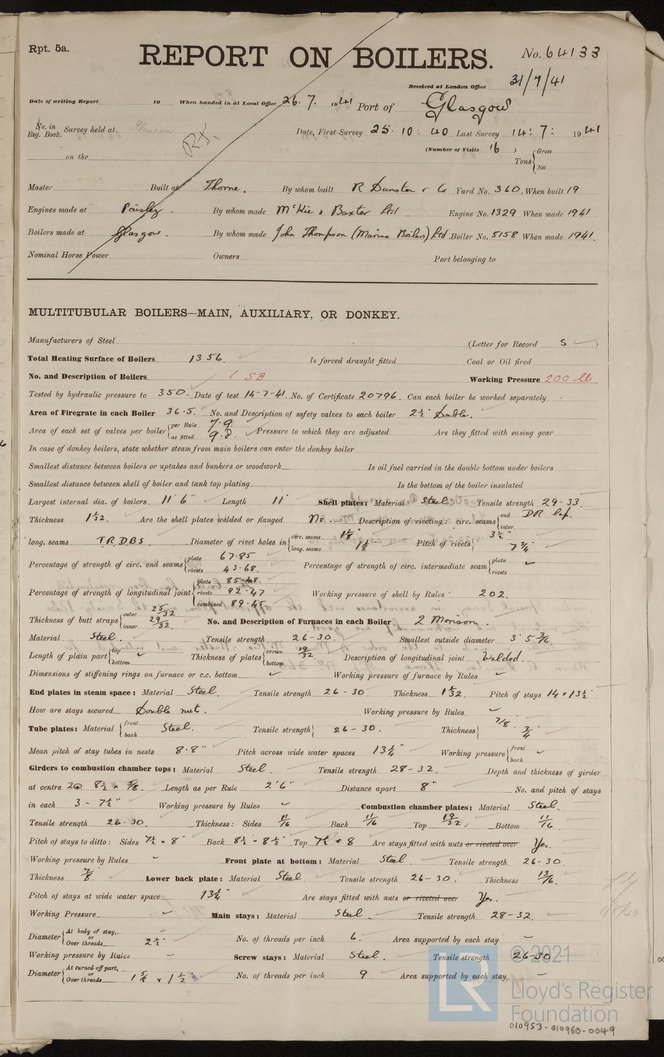 Rpt. 5a.
REPORT ON BOILERS.
No. 64133
Received at London Office 31/7/41
Date of writing Report 19 When handed in at Local Office 26.7. 1941 Port of Glasgow
No. in Reg. Book. Survey held at Date, First Survey 25.10.40 Last Survey 14:7: 1941
on the (Number of Visits 16) Tons { Gross Net
Master Built at Thorne. By whom built R Dunston & Co Yard No. 360. When built 19
Engines made at Paisley. By whom made McKie & Baxter Ltd Engine No. 1329 When made 1941
Boilers made at Glasgow. By whom made John Thompson (Marine Boilers) Ltd Boiler No. 5158 When made 1941.
Nominal Horse Power Owners Port belonging to
MULTITUBULAR BOILERS—MAIN, AUXILIARY, OR DONKEY.
Manufacturers of Steel (Letter for Record S)
Total Heating Surface of Boilers 1356. Is forced draught fitted Coal or Oil fired
No. and Description of Boilers 1 SB Working Pressure 200 lb
Tested by hydraulic pressure to 350. Date of test 14-7-41 No. of Certificate 20796. Can each boiler be worked separately
Area of Firegrate in each Boiler 36.5. No. and Description of safety valves to each boiler 2½" Double.
Area of each set of valves per boiler { per Rule 7.9 as fitted 9.8 Pressure to which they are adjusted Are they fitted with easing gear
In case of donkey boilers, state whether steam from main boilers can enter the donkey boiler
Smallest distance between boilers or uptakes and bunkers or woodwork Is oil fuel carried in the double bottom under boilers
Smallest distance between shell of boiler and tank top plating Is the bottom of the boiler insulated
Largest internal dia. of boilers 11' 6" Length 11' Shell plates: Material Steel Tensile strength 29-33.
Thickness 1 1/32. Are the shell plates welded or flanged No. Description of riveting: circ. seams { end DR lap. inter.
long. seams TRDBS. Diameter of rivet holes in { circ. seams 1⅛" long. seams 1⅛" Pitch of rivets { 3½" 7¾"
Percentage of strength of circ. end seams { plate 67.85 rivets 43.68. Percentage of strength of circ. intermediate seam { plate rivets
Percentage of strength of longitudinal joint { plate 85.48. rivets 92.47 combined 89.45. Working pressure of shell by Rules 202.
Thickness of butt straps { outer 25/32 inner 29/32 No. and Description of Furnaces in each Boiler 2 Morison.
Material Steel. Tensile strength 26-30. Smallest outside diameter 3' 5 3/16.
Length of plain part { top bottom Thickness of plates { crown bottom 19/32 Description of longitudinal joint Welded.
Dimensions of stiffening rings on furnace or c.c. bottom Working pressure of furnace by Rules
End plates in steam space: Material Steel. Tensile strength 26-30. Thickness 1 1/32. Pitch of stays 14 × 13½"
How are stays secured Double nut. Working pressure by Rules
Tube plates: Material { front back Steel. Tensile strength { 26-30. Thickness { 7/8" ¾"
Mean pitch of stay tubes in nests 8.8" Pitch across wide water spaces 13¼" Working pressure { front back
Girders to combustion chamber tops: Material Steel. Tensile strength 28-32. Depth and thickness of girder
at centre 2@ 8½ × 5/8. Length as per Rule 2'6" Distance apart 8" No. and pitch of stays
in each 3 - 7½" Working pressure by Rules Combustion chamber plates: Material Steel.
Tensile strength 26-30. Thickness: Sides 11/16 Back 11/16 Top 19/32 Bottom 11/16
Pitch of stays to ditto: Sides 7½ × 8" Back 8½ - 8½" Top 7½ × 8 Are stays fitted with nuts or riveted over Yes.
Working pressure by Rules Front plate at bottom: Material Steel. Tensile strength 26-30
Thickness 7/8" Lower back plate: Material Steel Tensile strength 26-30. Thickness 13/16"
Pitch of stays at wide water space 13¼" Are stays fitted with nuts or riveted over Yes.
Working Pressure Main stays: Material Steel. Tensile strength 28-32.
Diameter { At body of stay, or Over threads 2½" No. of threads per inch 6. Area supported by each stay
Working pressure by Rules Screw stays: Material Steel. Tensile strength 26-30
Diameter { At turned off part, or Over threads 1⅝" × 1½" No. of threads per inch 9 Area supported by each stay
© 2021
LR
Lloyd's Register
Foundation
010953-010960-0049